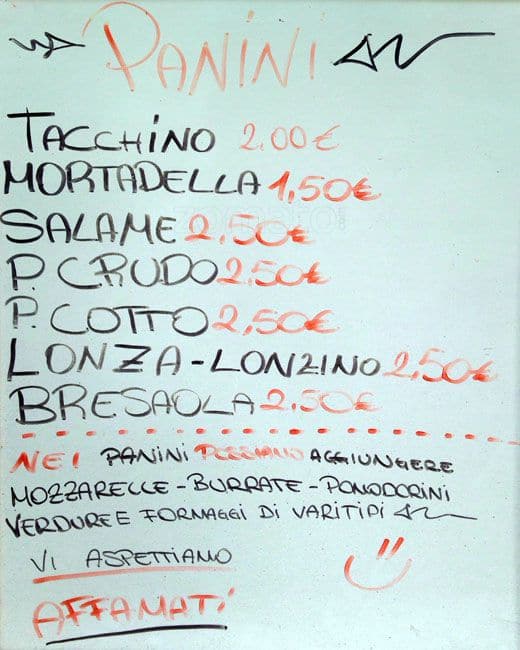 PANINI
TACCHINO 2.00€
MORTADELLA 1,50€
SALAME 2,50€
P. CRUDO 2,50€
P. COTTO 2,50€
LONZA-LONZINO 2,50€
BRESAOLA 2.50€
NEI PANINI POSSIAMO AGGIUNGERE
MOZZARELLE-BURRATE-POMODORINI
VERDURE E FORMAGGI DI VARI TIPI
VI ASPETTIAMO
AFFAMATI